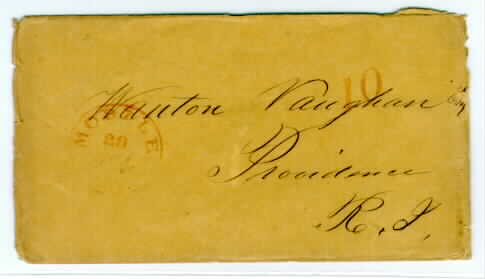 10
Wanton Vaughan Esq
MOBILE
20
Providence
R. I.